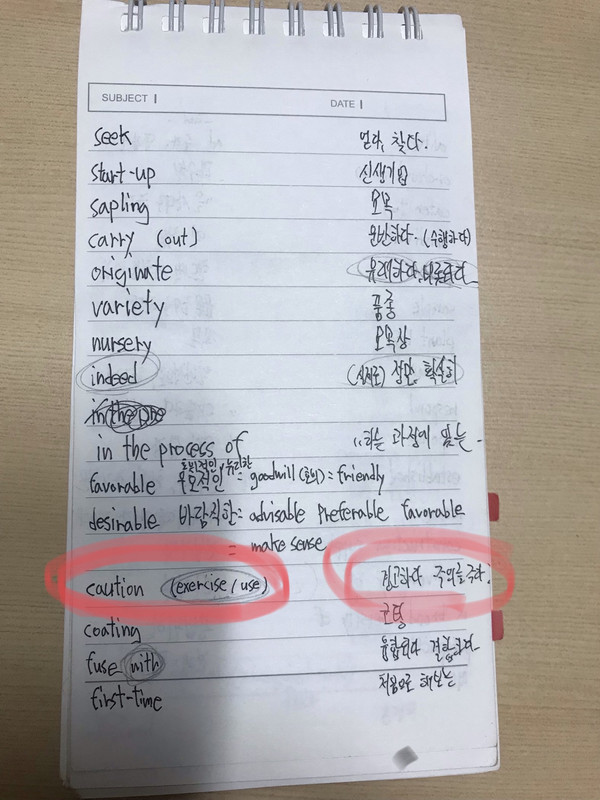 SUBJECT | DATE |
seek 얻다, 찾다.
start-up 신생기업
sapling 묘목
carry (out) 운반하다. (수행하다)
originate 유래하다, 비롯되다
variety 품종
nursery 묘목상
indeed (실제로) 정말, 확실히
in the pro
in the process of ~하는 과정에 있는
호의적인, 유리한
favorable 우호적인 = goodwill (호의) = friendly
desirable 바람직한 = advisable preferable favorable
= make sense
caution (exercise / use) 경고하다 주의를 주다.
coating 코팅
fuse with 융합되다 결합하다
first-time 처음으로 해보는